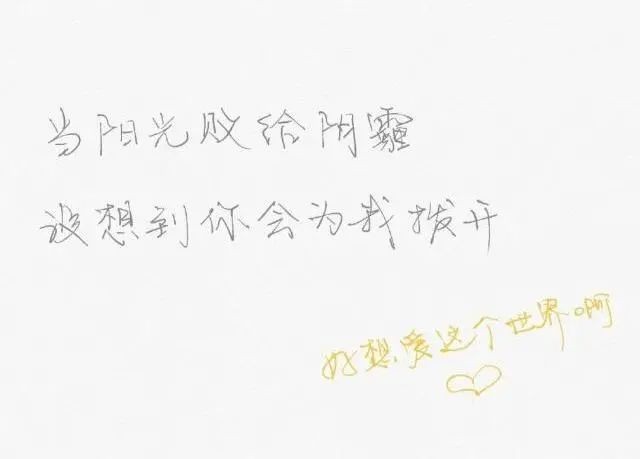 当阳光败给阴霾
没想到你会为我拨开
好想爱这个世界啊